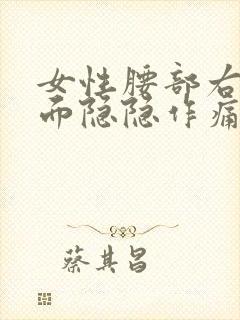 女性腰部右
而隐隐作痛
蔡其昌